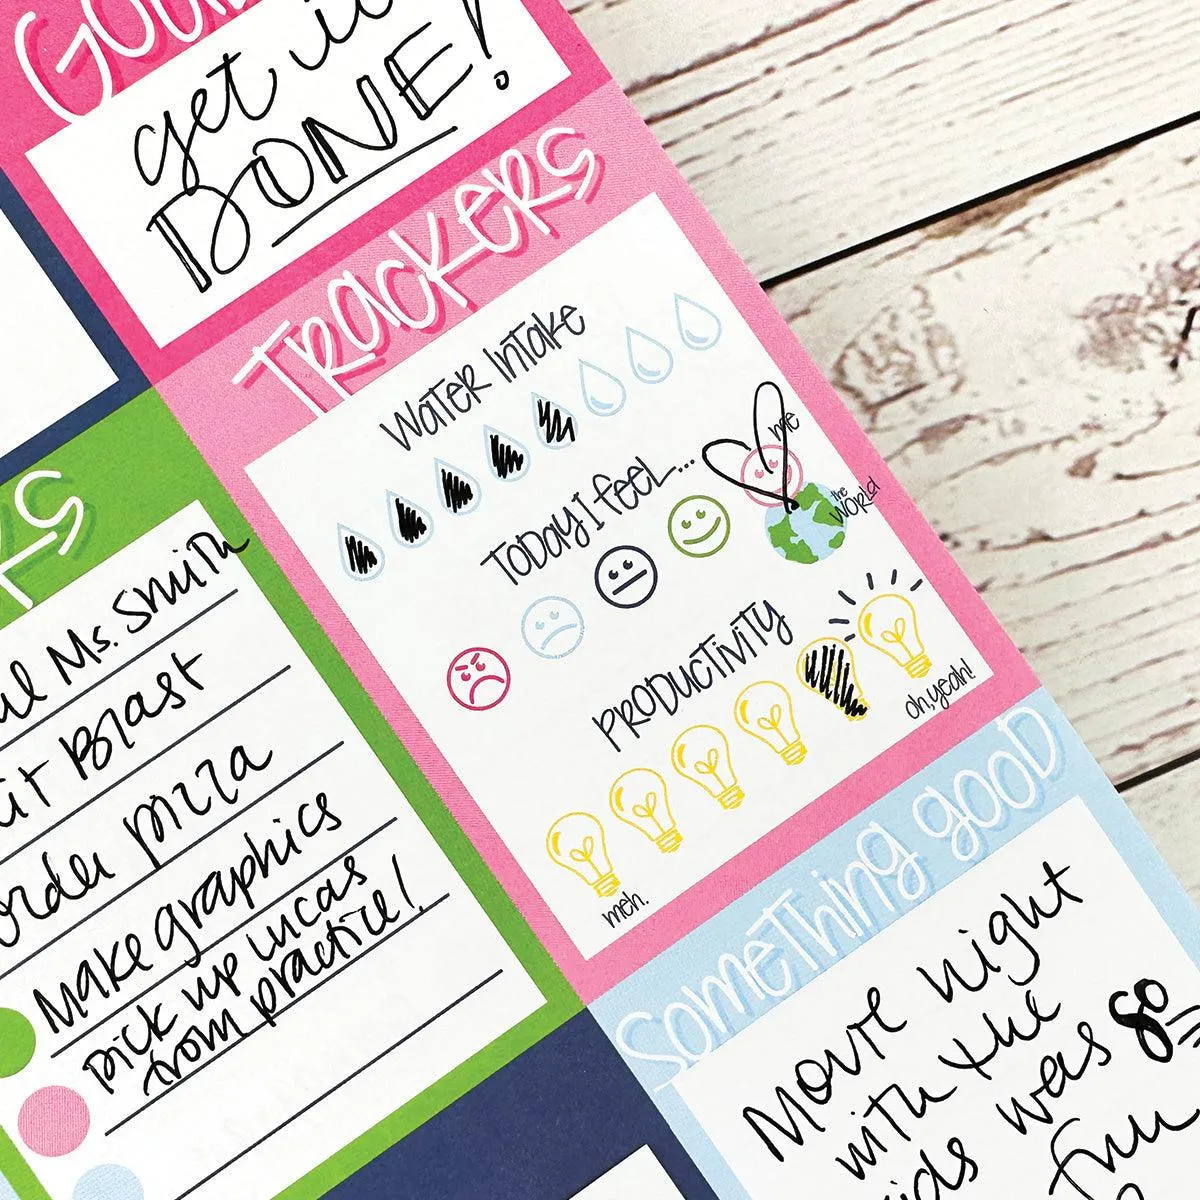 get it
DONE!
TRACKERS
WATER INTAKE
TODAY I FEEL...
me
the WORLD
PRODUCTIVITY
meh.
oh, yeah!
Ms. Smith
Blast
order pizza
Make graphics
pick up Lucas
from practice!
SOMETHING GOOD
Movie night
with the
was so
fun